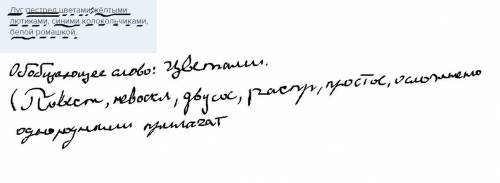 Луг пестрел цветами:жёлтыми
лютиками, синими колокольчиками,
белой ромашкой.
Обобщающее слово: цветами.
(Повест, невоскл, двусос, распр, простое, осложнено
однородными прилагат